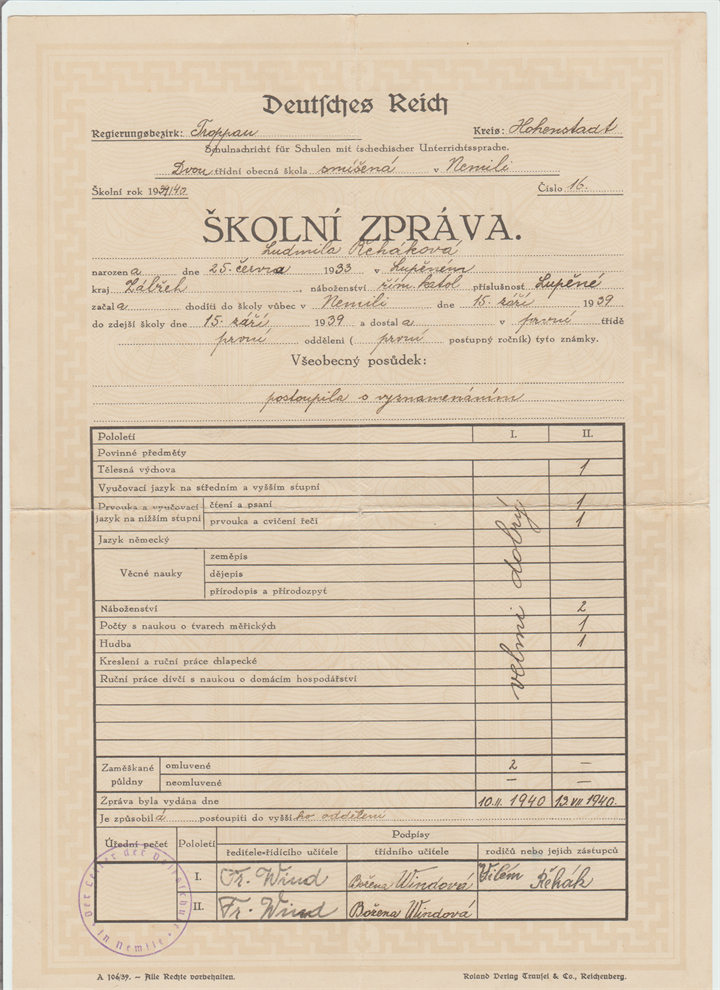 Deutsches Reich
Regierungsbezirk: Troppau Kreis: Hohenstadt
Schulnachricht für Schulen mit tschechischer Unterrichtssprache.
Dvou třídní obecná škola smíšená v Nemili
Školní rok 1939/40 Číslo 16.
ŠKOLNÍ ZPRÁVA.
Ludmila Řeháková
narozena dne 25. června 1933 v Lupěném
kraj Zábřeh náboženství řím. katol příslušnost Lupěné
začala choditi do školy vůbec v Nemili dne 15. září 1939
do zdejší školy dne 15. září 1939 a dostala v první třídě
první oddělení ( první postupný ročník) tyto známky.
Všeobecný posudek:
postoupila s vyznamenáním
Pololetí I. II.
Povinné předměty
Tělesná výchova 1
Vyučovací jazyk na středním a vyšším stupni
Prvouka a vyučovací jazyk na nižším stupni
čtení a psaní 1
prvouka a cvičení řeči 1
Jazyk německý
Věcné nauky
zeměpis
dějepis
přírodopis a přírodozpyt
Náboženství 2
Počty s naukou o tvarech měřických 1
Hudba 1
Kreslení a ruční práce chlapecké
Ruční práce dívčí s naukou o domácím hospodářství
velmi dobrý
Zaměškané půldny
omluvené 2 —
neomluvené — —
Zpráva byla vydána dne 10.II. 1940 13.VII 1940.
Je způsobilá postoupiti do vyššího oddělení
Úřední pečeť Pololetí Podpisy
ředitele-řídícího učitele třídního učitele rodičů nebo jejich zástupců
I. Fr. Wind Božena Windová Vilém Řehák
II. Fr. Wind Božena Windová
Der Leiter der Volksschule
in Nemile
A 106/39. – Alle Rechte vorbehalten. Roland Verlag Trausel & Co., Reichenberg.